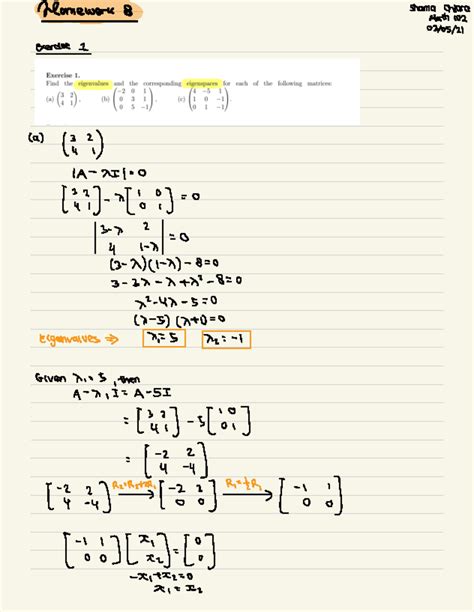 Homework 8
Math 102
02/05/21
Exercise 1
Exercise 1.
Find the eigenvalues and the corresponding eigenspaces for each of the following matrices:
(a) (3 2; 4 1), (b) (-2 0 1; 0 3 1; 0 5 -1), (c) (4 -5 1; 1 0 -1; 0 1 -1).
(a) (3 2; 4 1)
|A - λI| = 0
[3 2; 4 1] - λ[1 0; 0 1] = 0
|3-λ 2; 4 1-λ| = 0
(3-λ)(1-λ) - 8 = 0
3 - 3λ - λ + λ² - 8 = 0
λ² - 4λ - 5 = 0
(λ-5)(λ+1) = 0
Eigenvalues ⇒ λ₁ = 5 λ₂ = -1
Given λ₁ = 5, then
A - λ₁I = A - 5I
= [3 2; 4 1] - 5[1 0; 0 1]
= [-2 2; 4 -4]
[-2 2; 4 -4] R₂=R₂+2R₁ → [-2 2; 0 0] R₁=½R₁ → [-1 1; 0 0]
[-1 1; 0 0][x₁; x₂] = [0; 0]
-x₁+x₂=0
x₁ = x₂